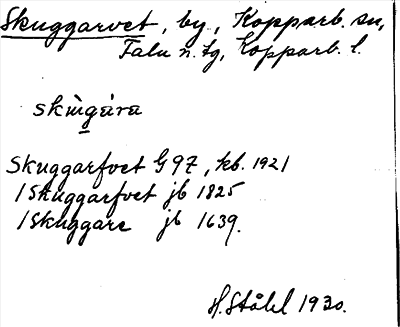 Skuggarvet, by, Kopparb. sn,
Falu n. tg, Kopparb. l.
skùgára
Skuggarfvet G97, kb. 1921
/Skuggarfvet jb 1825
/Skuggare jb 1639.
H. Ståhl 1930.